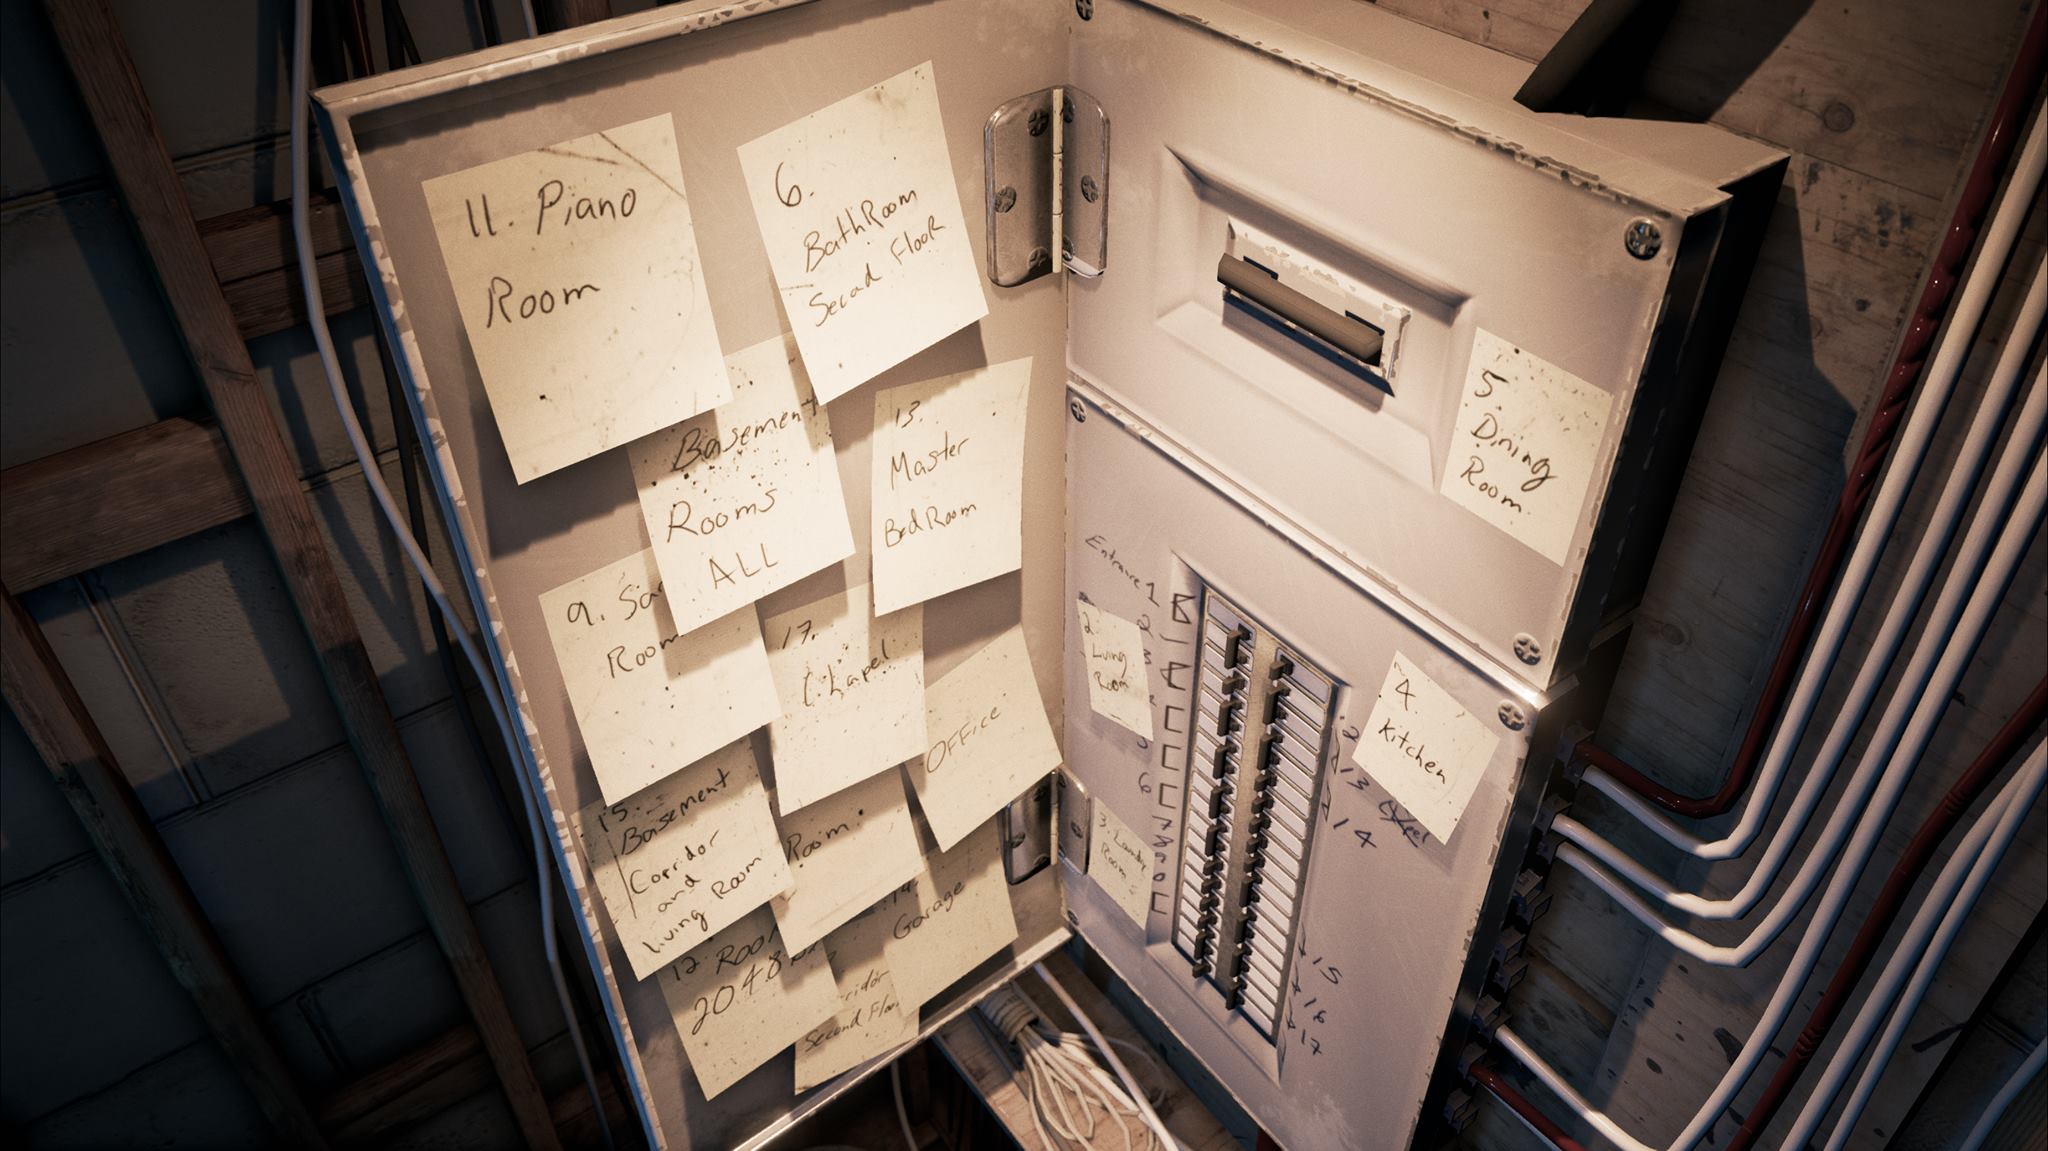 11. Piano
Room
6.
BathRoom
Secod Floor
Basement
Rooms
ALL
13.
Master
BedRoom
9.
Room
17.
Chapel
OFFice
15.
Basement
Corridor
and
living Room
Room.
14.
Garage
12 Room
Second Floor
5.
Dining
Room.
Entrance 1
2
3
2.
Living
Room
5
6
7
3. Laundry
Room
4.
Kitchen
12
13
14
15
16
17